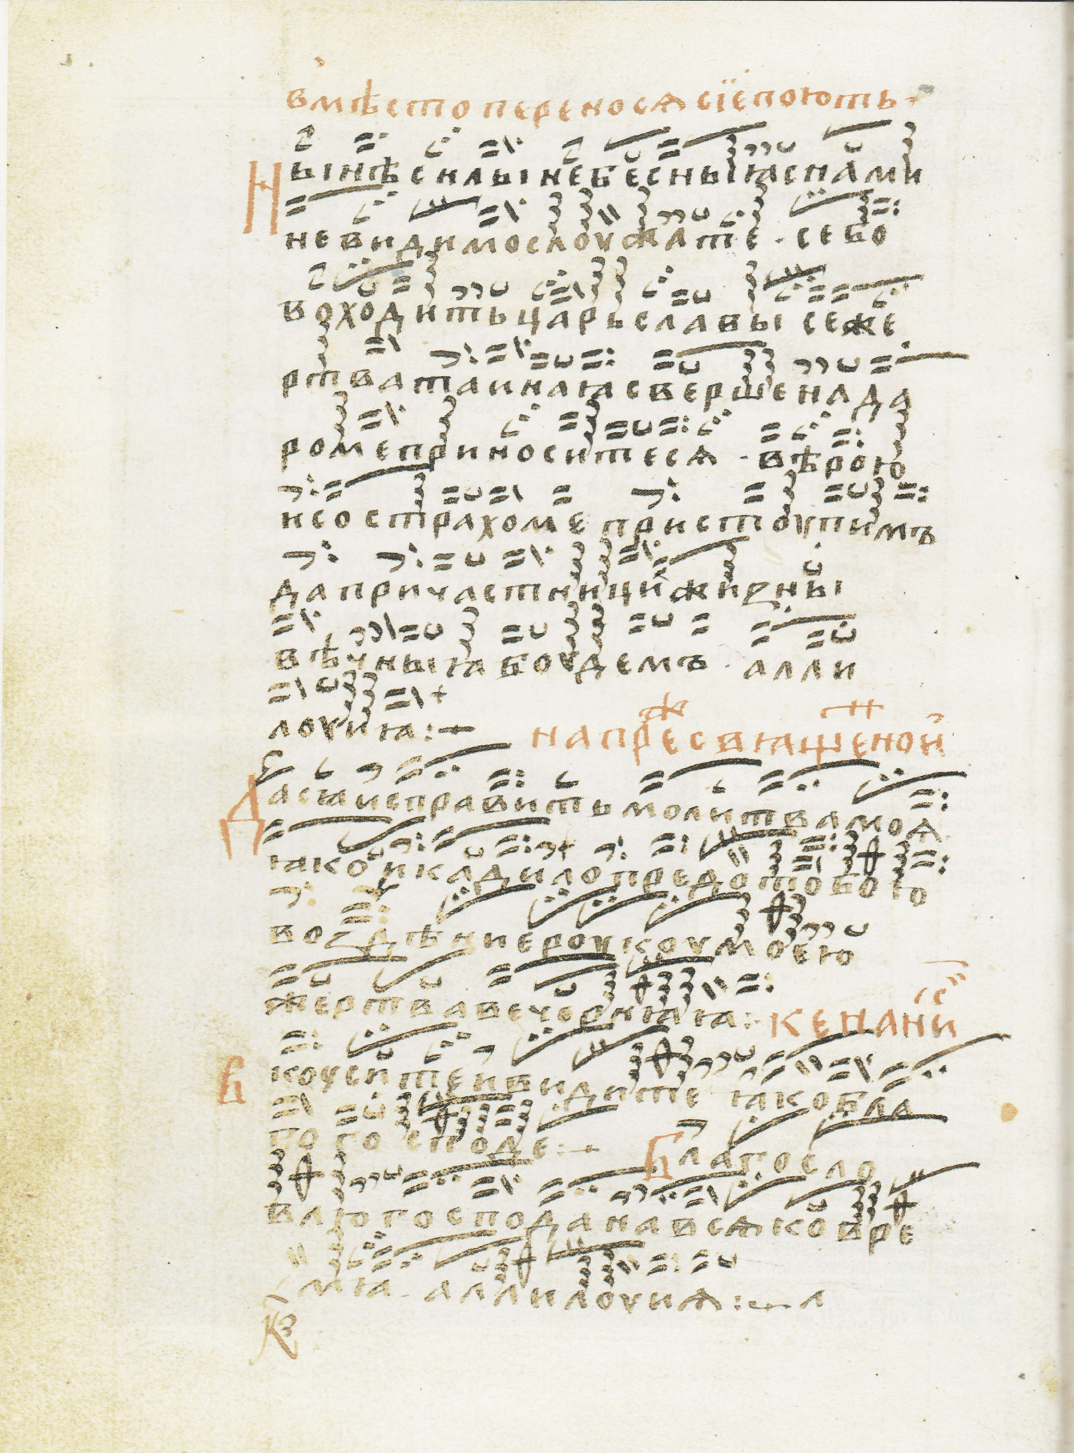 вмѣсто переносѧ сїе поють
Нынѣ силы небесныꙗ с нами
невидимо слоужате · се бо
воходить царь славы се же
ртва таинаꙗ свершена да
роме приноситесѧ · вѣрою
и со страхоме пристоупимъ
да причастници жизны
вѣчныꙗ боудемъ · алли
лоуиꙗ :
на прежесвꙗщеной
Да сѧ исправить молитва моѧ
ꙗко и кадило предо тобою
воздѣꙗние роукоу моею
жертва вечернꙗꙗ :
кенаники
Вкоусите и видите ꙗко бла
го господе : Благосло
влю господа на всѧко вре
мꙗ · аллилоуиѧ :
кз